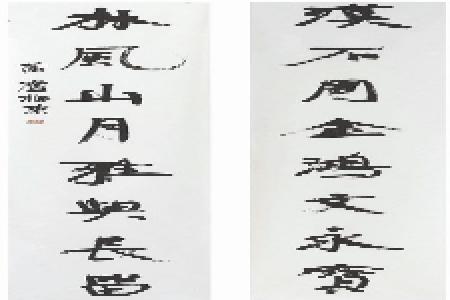 漢石周金鴻文永寶
林風山月雅興長留